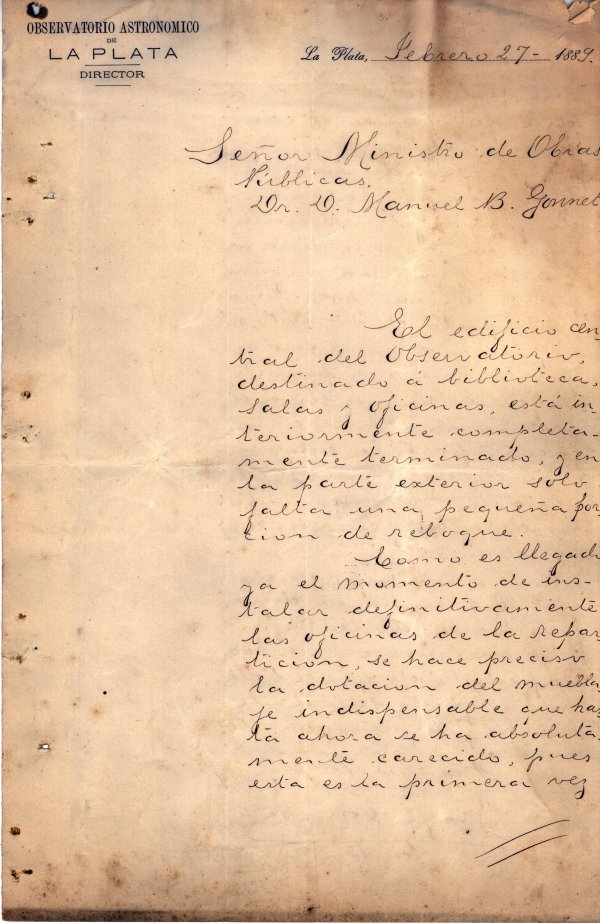 OBSERVATORIO ASTRONOMICO
DE
LA PLATA
DIRECTOR
La Plata, Febrero 27- 1889.
Señor Ministro de Obras
Públicas,
Dr. D. Manuel B. Gonnet
El edificio cen-
tral del Observatorio,
destinado á biblioteca,
salas y oficinas, está in-
teriormente completa-
mente terminado, y en
la parte exterior solo
falta una pequeña por-
cion de reboque.
Como es llegado
ya el momento de ins-
talar definitivamente
las oficinas de la repar-
ticion, se hace preciso
la dotacion del muebla-
je indispensable que has-
ta ahora se ha absoluta-
mente carecido, pues
esta es la primera vez